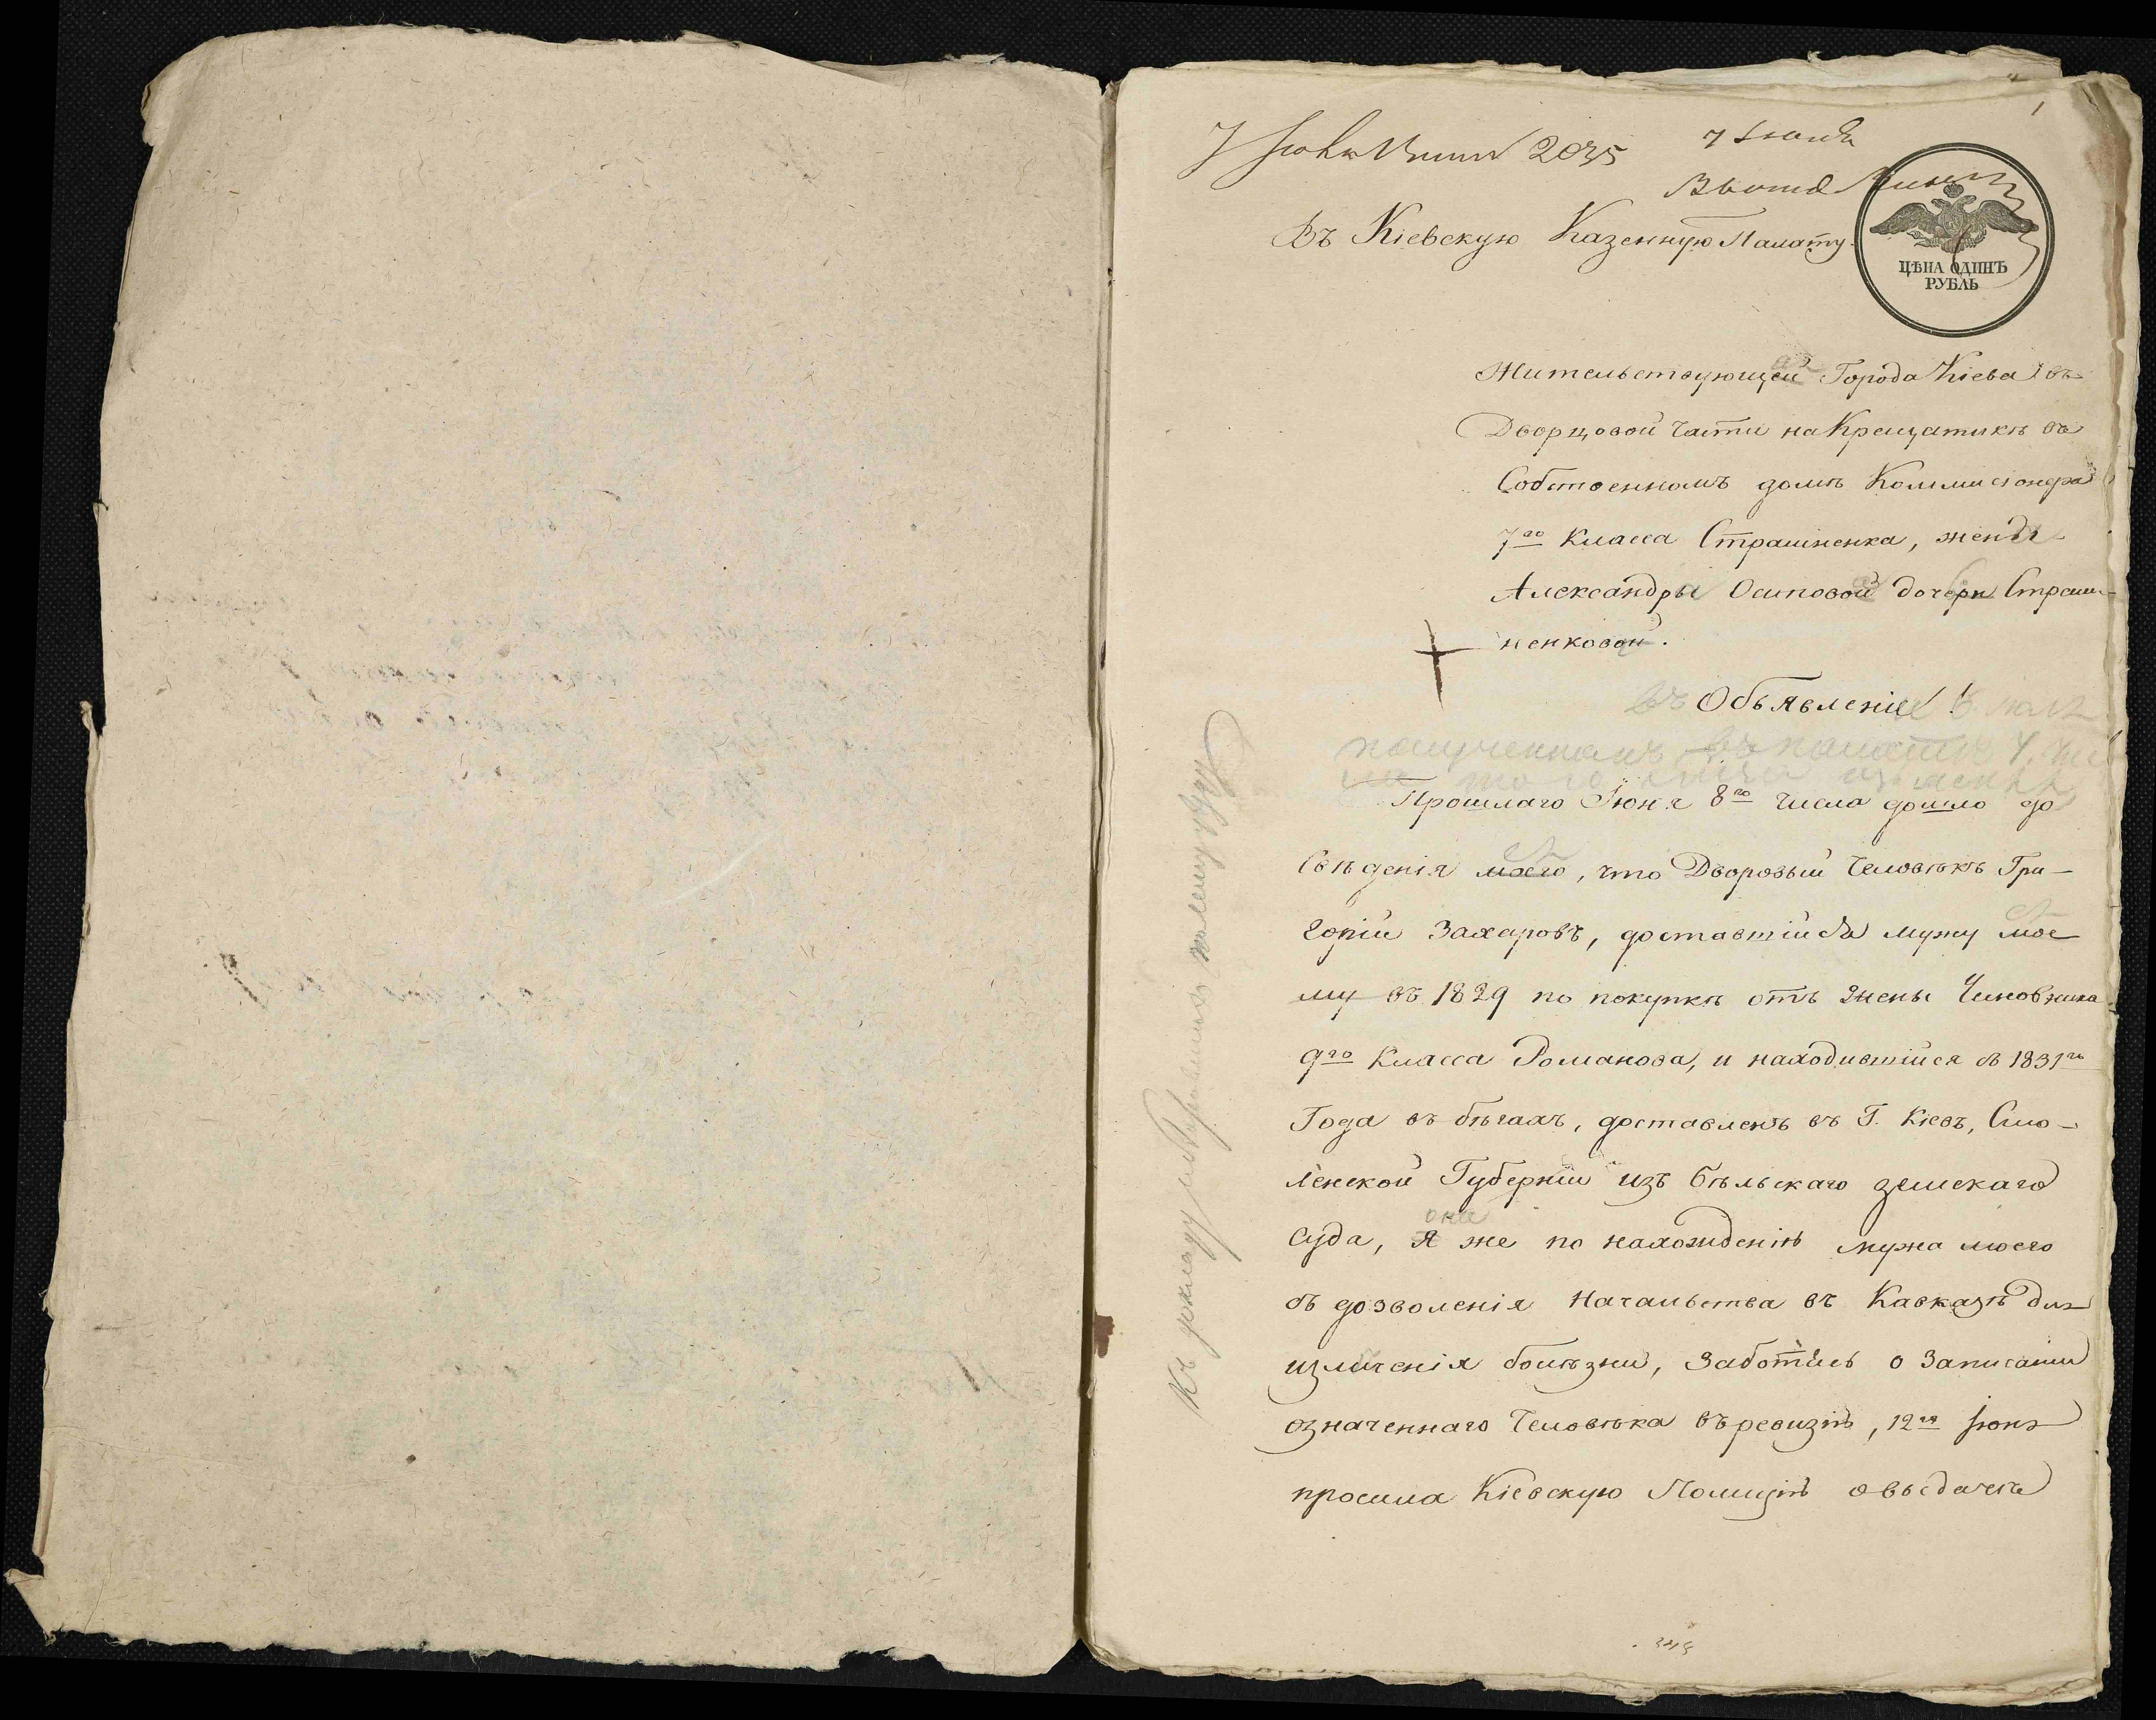 1
7 Июля 2035
7 Июля
Въ Кіевскую Казенную Палату.
ЦѢНА ОДИНЪ
РУБЛЬ
Жительствующей Города Кіева въ
Дворцовой Части на Крещатикѣ въ
Собственномъ домѣ Коммисіонера
7го Класса Страшненка, жены
Александры Осиповой дочери Страш-
ненковой.
въ Объявленіе!
полученномъ въ палатѣ 7
Прошлаго Іюня 8го числа дошло до
Свѣденія моего, что Дворовый Человѣкъ Гри-
горій Захаровъ, доставшійся мужу мое
му въ 1829 по покупкѣ отъ жены Чиновника
9го Класса Романова, и находившійся съ 1831го
Года въ бѣгахъ, доставленъ въ Г. Кіевъ, Смо-
ленской Губерніи изъ Бѣльскаго земскаго
она
Суда, Я же по нахожденіѣ мужа моего
съ дозволенія Начальства въ Кавказѣ для
излѣченія болѣзни, Заботясь о Записаніи
означеннаго Человѣка въ ревизіѣ, 12го Іюня
просила Кіевскую Полицію о выдачѣ
Къ докладу